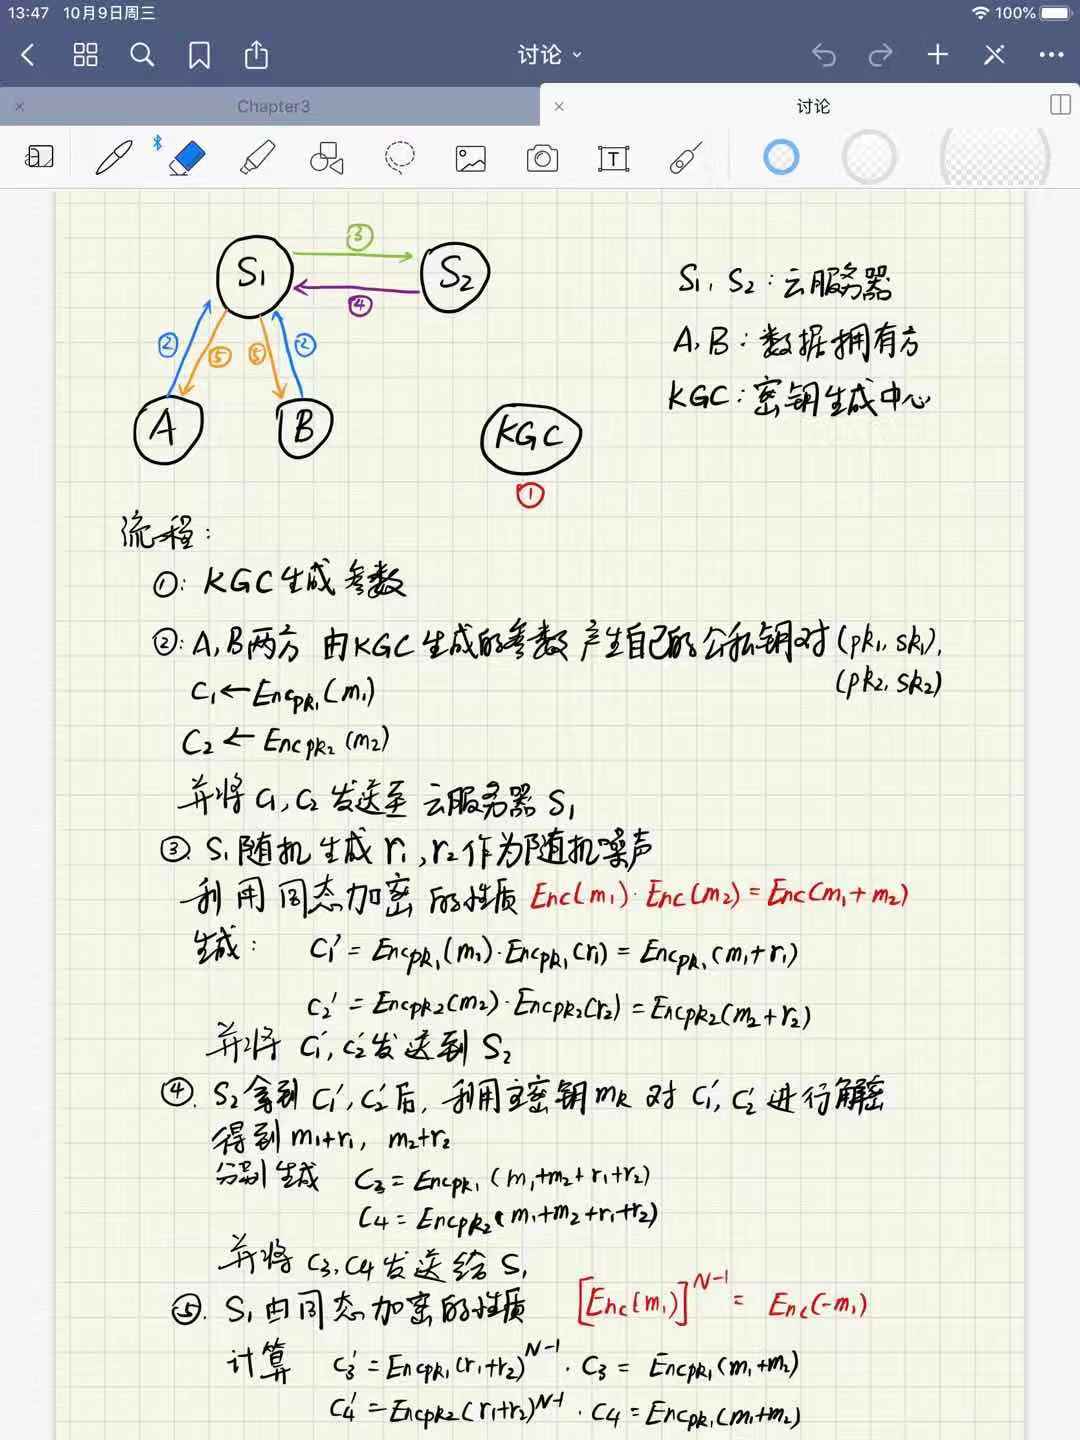 13:47 10月9日周三
100%
讨论
Chapter3
讨论
S1 ③ S2
④
② ⑤ ⑤ ②
A B KGC
①
S1, S2:云服务器
A, B:数据拥有方
KGC:密钥生成中心
流程:
①: KGC生成参数
②: A,B两方 由KGC生成的参数产生自己的公私钥对(pk1, sk1),
(pk2, sk2)
C1←Encpk1(m1)
C2 ← Encpk2(m2)
并将 C1, C2 发送至 云服务器 S1
③. S1随机生成 r1, r2作为随机噪声
利用同态加密的性质 Enc(m1)·Enc(m2) = Enc(m1+m2)
生成: C1' = Encpk1(m1)·Encpk1(r1) = Encpk1(m1+r1)
C2' = Encpk2(m2)·Encpk2(r2) = Encpk2(m2+r2)
并将 C1', C2'发送到 S2
④. S2拿到 C1', C2'后, 利用主密钥mk 对 C1', C2'进行解密
得到 m1+r1, m2+r2
分别生成 C3 = Encpk1(m1+m2+r1+r2)
C4 = Encpk2(m1+m2+r1+r2)
并将 C3, C4 发送给 S1
⑤. S1由同态加密的性质 [Enc(m1)]^N-1 = Enc(-m1)
计算 C3' = Encpk1(r1+r2)^N-1 · C3 = Encpk1(m1+m2)
C4' = Encpk2(r1+r2)^N-1 · C4 = Encpk1(m1+m2)